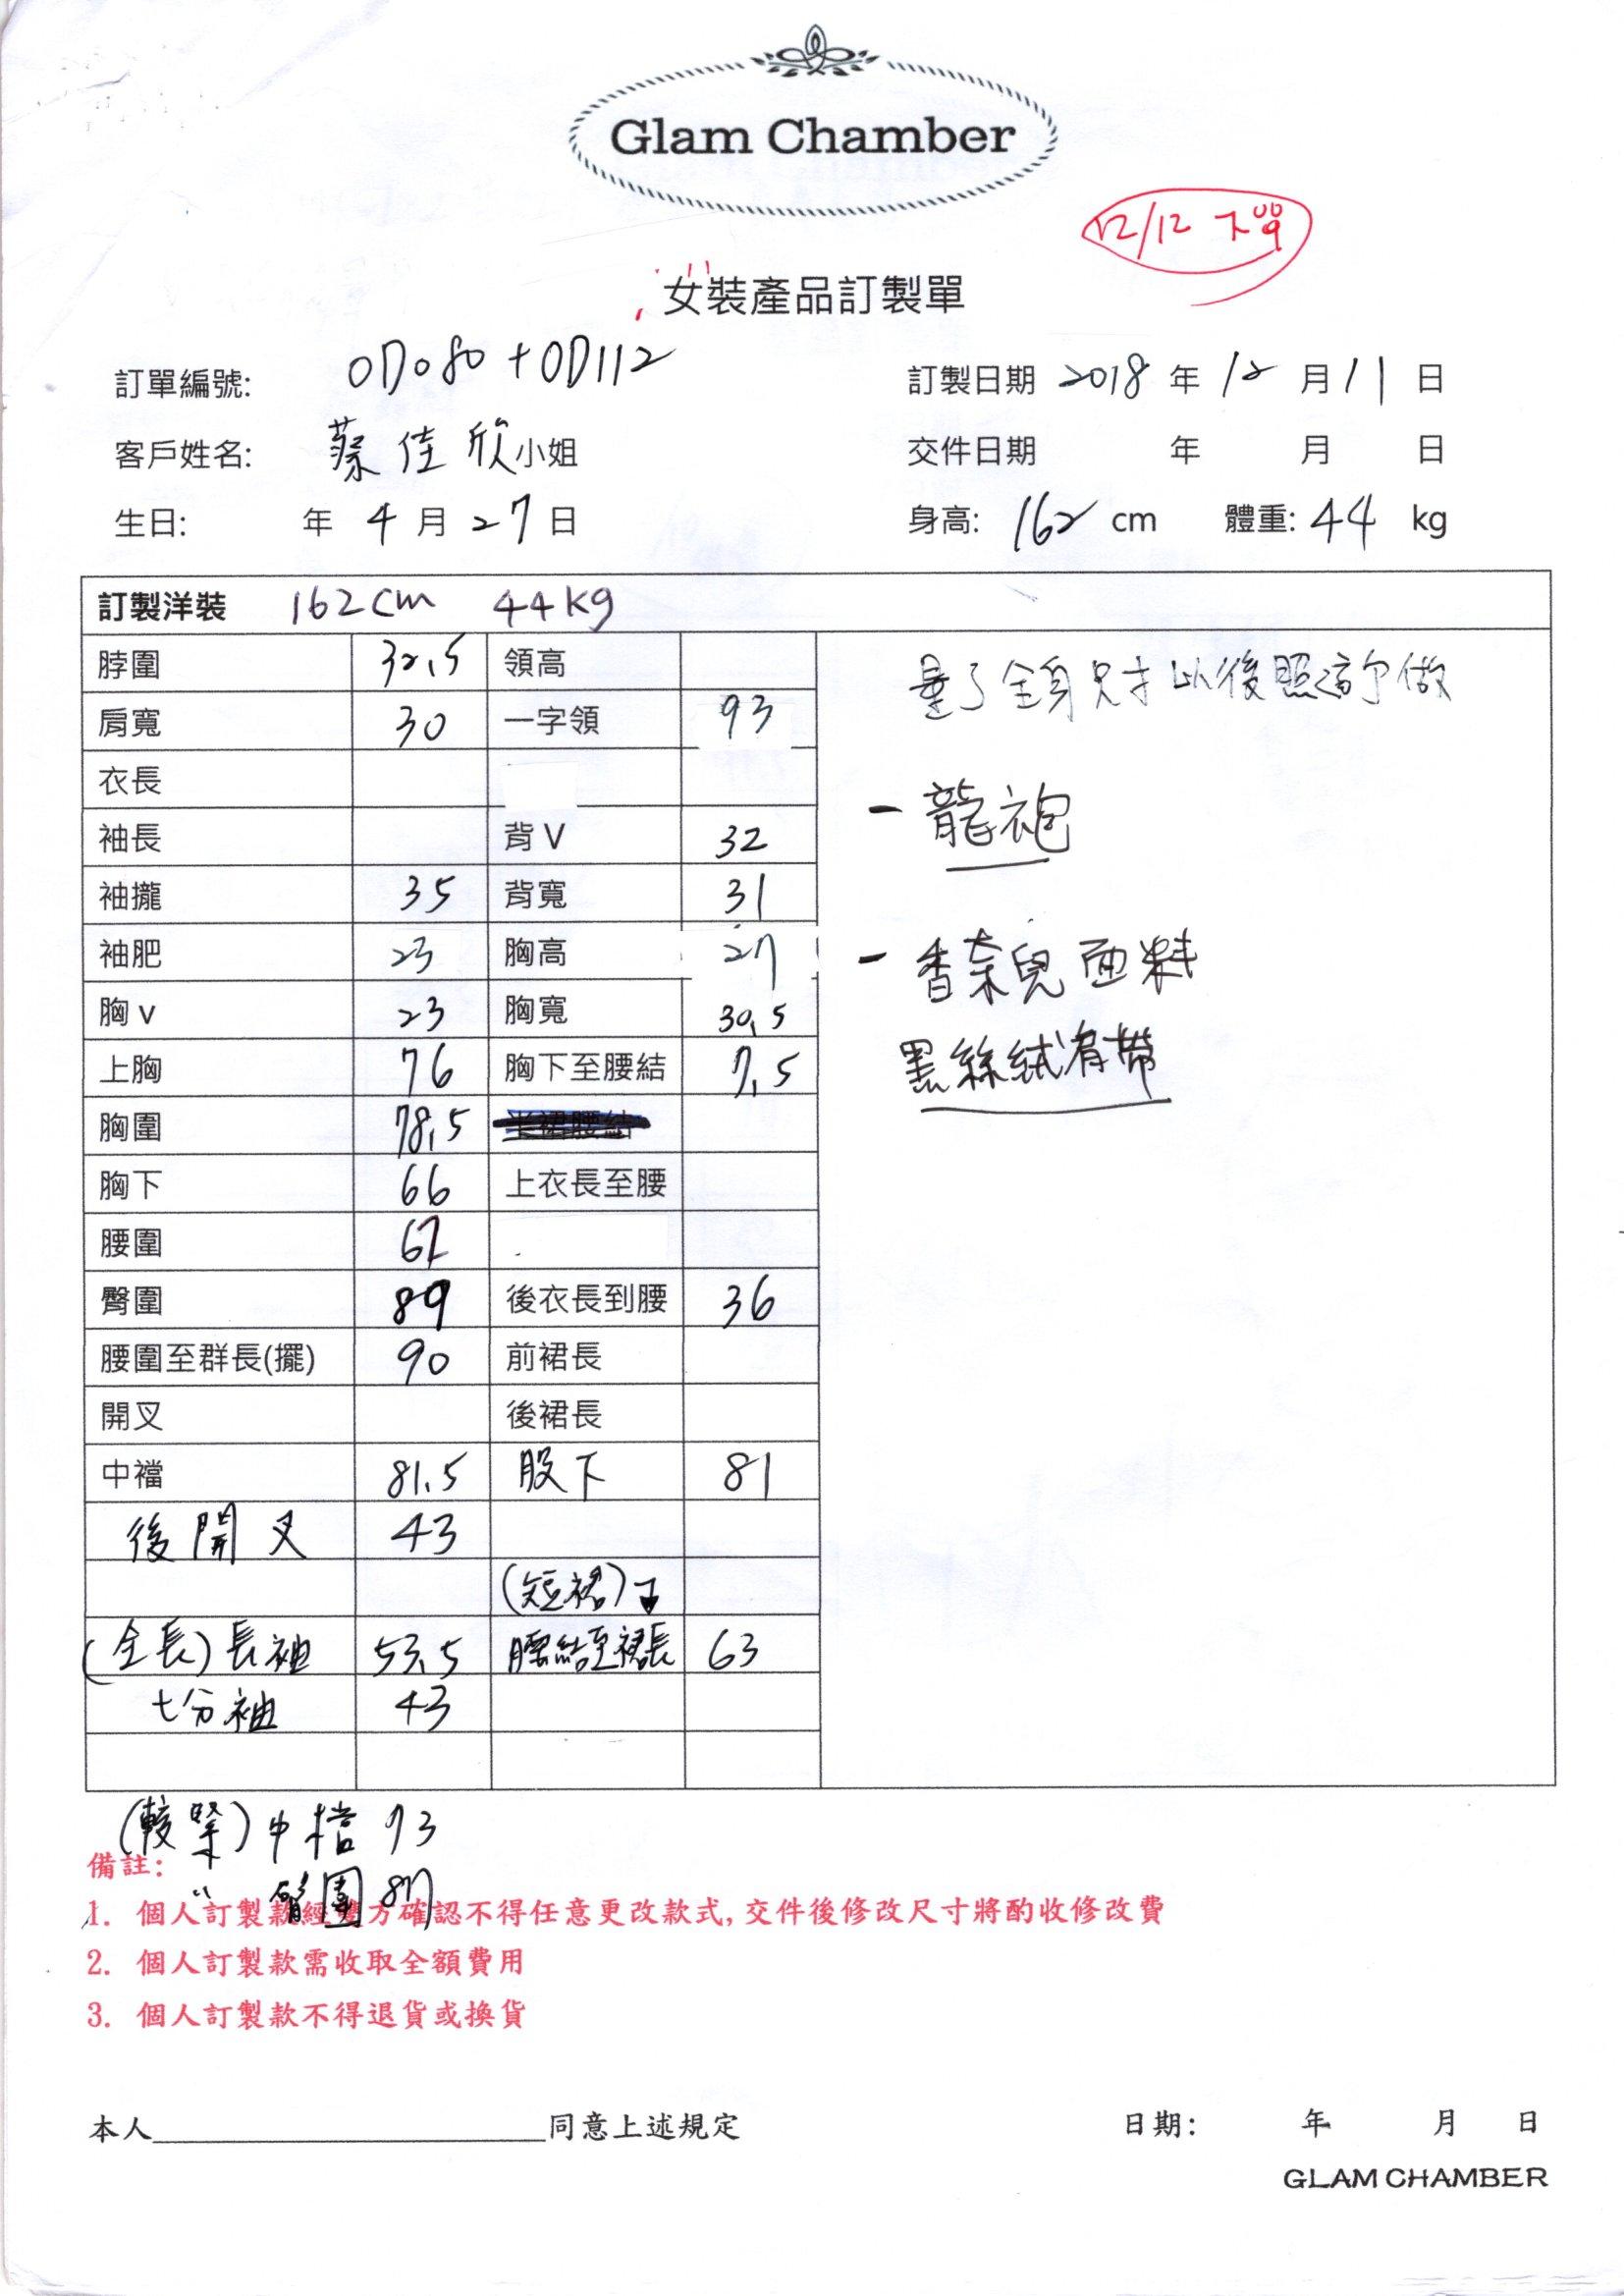 Glam Chamber
12/12 下單
女裝產品訂製單
訂單編號: OD080 + OD112
訂製日期 2018 年 12 月 11 日
客戶姓名: 蔡佳欣小姐
交件日期 年 月 日
生日: 年 4 月 27 日
身高: 162 cm 體重: 44 kg
訂製洋裝 162cm 44kg
脖圍 32.5 領高
肩寬 30 一字領 93
衣長
袖長 背 V 32
袖攏 35 背寬 31
袖肥 23 胸高 27
胸 v 23 胸寬 30.5
上胸 76 胸下至腰結 7.5
胸圍 78.5 半裙腰結
胸下 66 上衣長至腰
腰圍 62
臀圍 89 後衣長到腰 36
腰圍至群長(擺) 90 前裙長
開叉 後裙長
中襠 81.5 股下 81
後開叉 43
(短裙)↓
(全長)長袖 53.5 腰結至裙長 63
七分袖 43
量了全身尺寸以後照這个做
- 龍袍
- 香奈兒面料
黑絲絨肩帶
(較緊)中檔 73
" 臀圍 87
備註:
1. 個人訂製款經雙方確認不得任意更改款式, 交件後修改尺寸將酌收修改費
2. 個人訂製款需收取全額費用
3. 個人訂製款不得退貨或換貨
本人 同意上述規定
日期: 年 月 日
GLAM CHAMBER